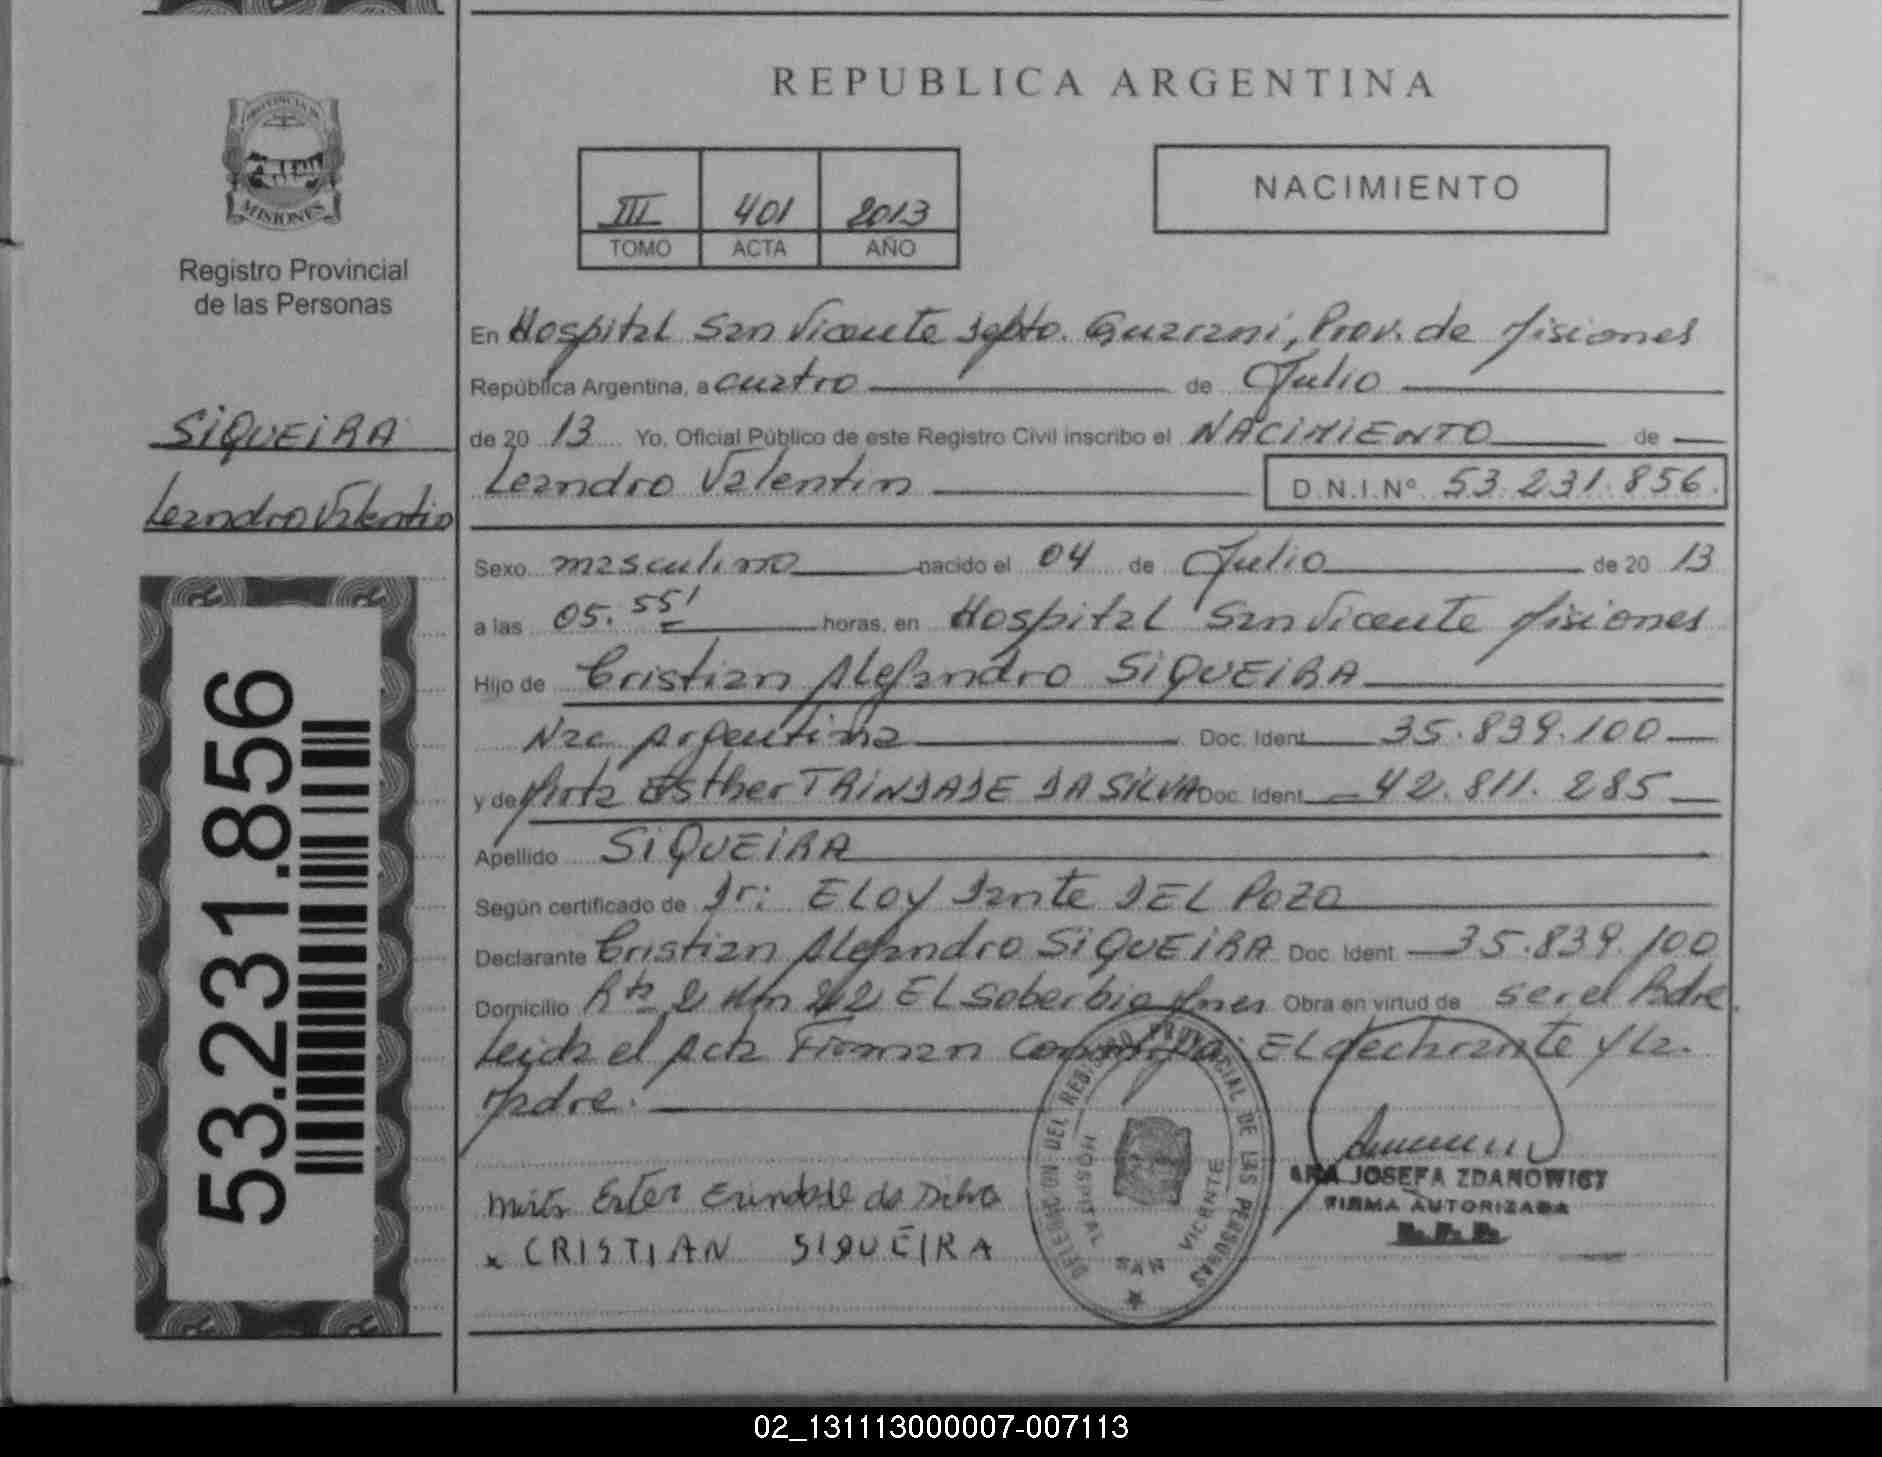 REPUBLICA ARGENTINA
PROVINCIA DE
MISIONES
Registro Provincial
de las Personas
III 401 2013
TOMO ACTA AÑO
NACIMIENTO
SIQUEIRA
Leandro Valentin
53.231.856
En Hospital San Vicente Depto. Guarani, Prov. de Misiones
República Argentina, a cuatro de Julio
de 20 13 Yo, Oficial Público de este Registro Civil inscribo el NACIMIENTO de
Leandro Valentin D.N.I.Nº 53.231.856.
Sexo masculino nacido el 04 de Julio de 20 13
a las 05.55' horas, en Hospital San Vicente Misiones
Hijo de Cristian Alejandro SIQUEIRA
Nac. Argentina Doc. Ident. 35.839.100
y de Mirta Esther TRINDADE DA SILVA Doc. Ident. 42.811.285
Apellido SIQUEIRA
Según certificado de Dr: ELOY Dante DEL POZO
Declarante Cristian Alejandro SIQUEIRA Doc. Ident. 35.839.100
Domicilio Rta 2 Km 212 EL Soberbio Mnes Obra en virtud de ser el Padre
Leida el Acta Firman Conmigo: EL declarante y La
Madre.
DELEGACION DEL REGISTRO PROVINCIAL DE LAS PERSONAS
HOSPITAL SAN VICENTE
JOSEFA ZDANOWICT
FIRMA AUTORIZADA
R.P.P.
Mirta Ester da Silva
x CRISTIAN SIQUEIRA
02_131113000007-007113